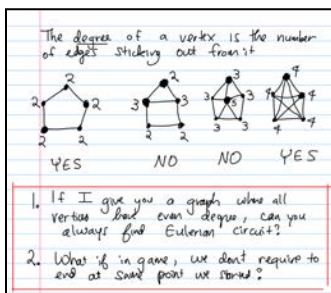 The degree of a vertex is the number
of edges sticking out from it
2
2 2
2 2
YES
2
3 3
2 2
NO
3
3 5 3
3 3
NO
4
4 4
4 4
YES
1. If I give you a graph where all
verties have even degree, can you
always find Eulerian circuit?
2. What if in game, we dont require to
end at same point we started?